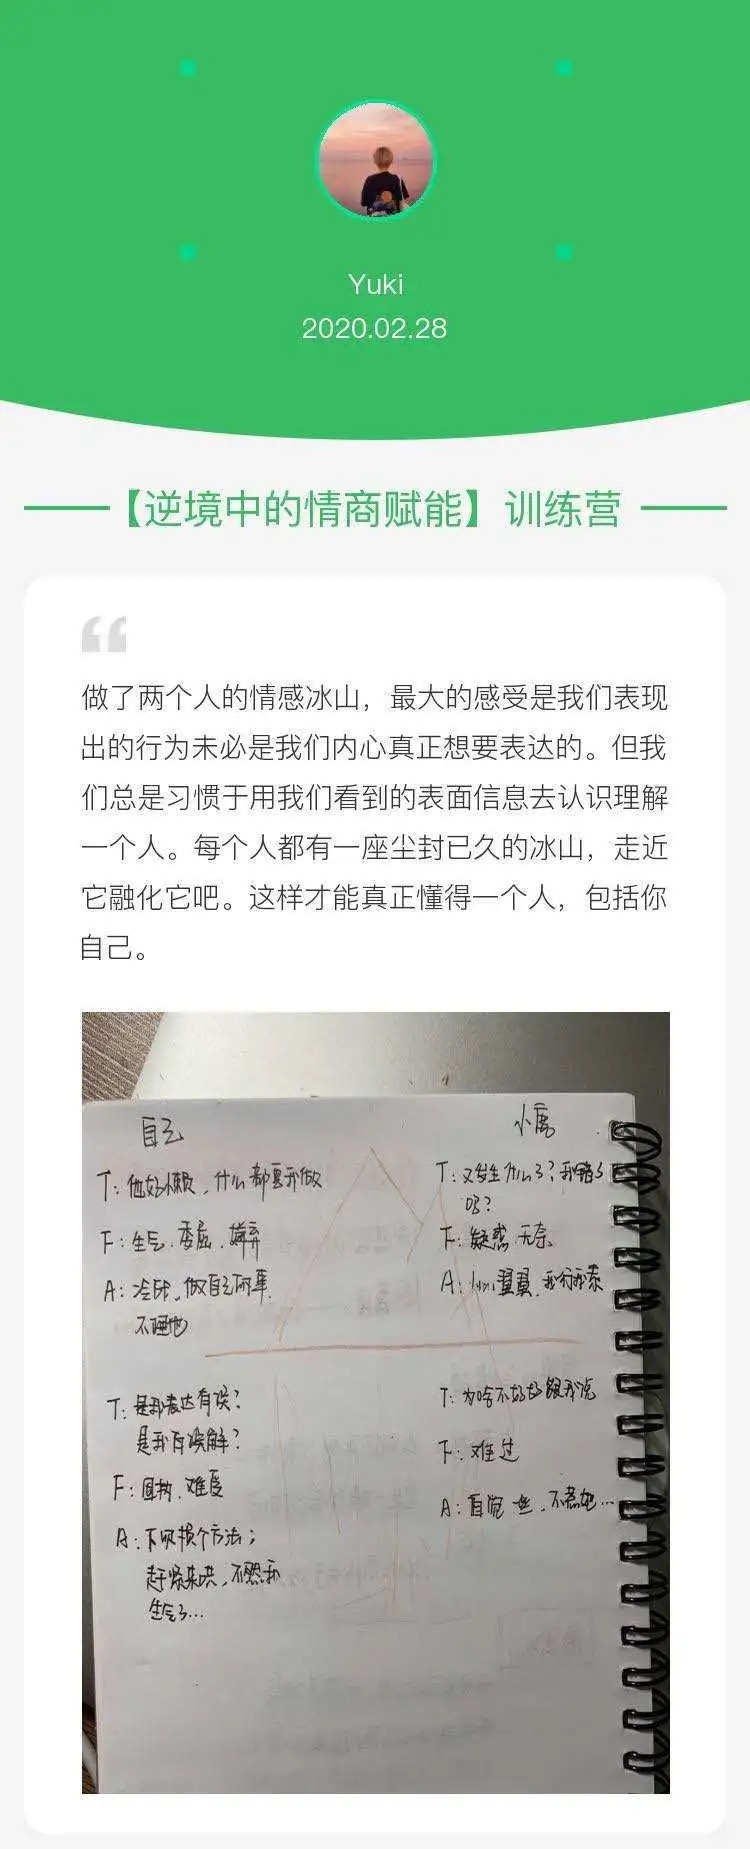 Yuki
2020.02.28
【逆境中的情商赋能】训练营
做了两个人的情感冰山，最大的感受是我们表现
出的行为未必是我们内心真正想要表达的。但我
们总是习惯于用我们看到的表面信息去认识理解
一个人。每个人都有一座尘封已久的冰山，走近
它融化它吧。这样才能真正懂得一个人，包括你
自己。
自己
T：他好懒，什么都要我做
F：生气、委屈、嫌弃
A：冷战，做自己的事，
不理他
T：是我表达有误？
是我有误解？
F：困扰、难受
A：下次换个方法；
赶紧来哄，不然我
生气了…
T：又发生什么了？我错了
吗？
F：疑惑、无奈
A：小心翼翼、我行我素
T：为啥不好好跟我说
F：难过
A：自觉一些，不惹她…